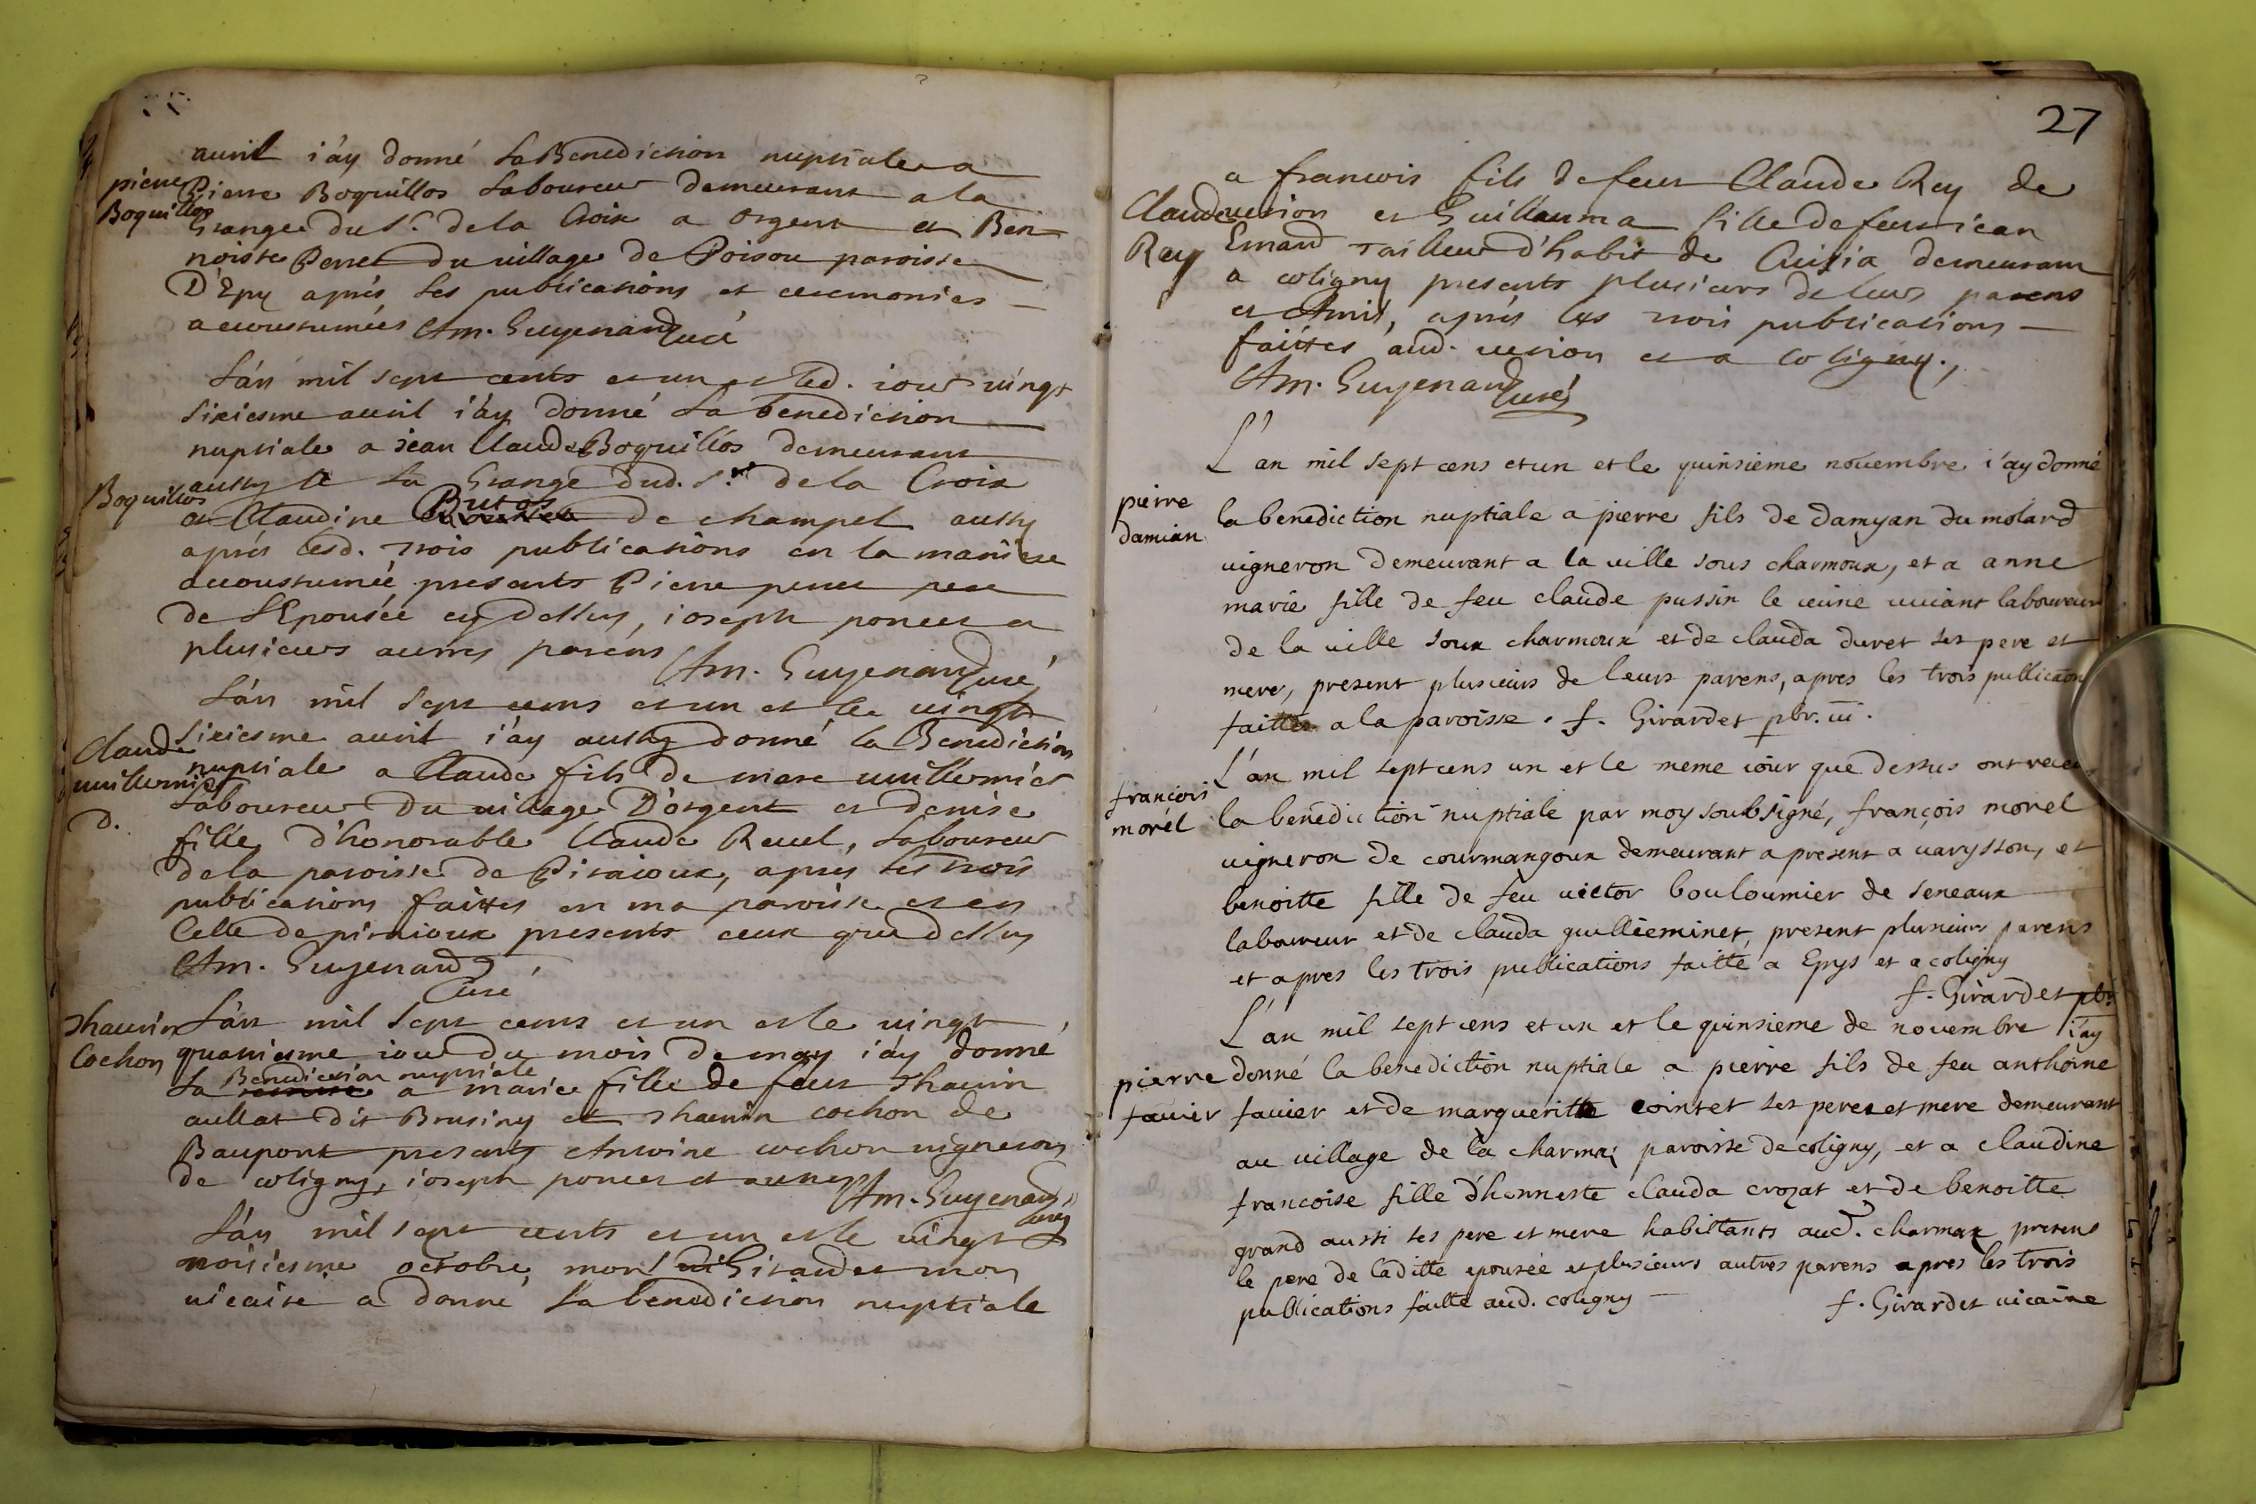 auril i'ay donné La Benediction nuptiale a
pierre
Boquillos
Pierre Boquillos Laboureur demeurant a la
Grange du Sr. de la Croix a orgent et Ben
noiste Penet du village de Poisou paroisse
D'Epy aprés les publications et ceremonies
accoustumées Am. Guyenard Curé
L'an mil sept cents et un et led. iour vingt
sixiesme auril i'ay donné La benediction
nuptiale a jean Claude Boquillos demeurant
Boquillos
aussy a la Grange dud. Sr. de la Croix
et Claudine Butos de champel aussy
aprés lesd. trois publications en la maniere
accoustumée, presents Pierre penet pere
de l'Epousée cy dessus, ioseph poncet et
plusieurs autres parens Am. Guyenard Curé
L'an mil sept cens et un et le vingt
Claude
uuillermiet
D.
sixiesme auril i'ay aussy donné la Benediction
nuptiale a Claude fils de marc uuillermiet
Laboureur du village D'orgent et denise
fille d'honorable Claude Revel, Laboureur
de la paroisse de Piraioux, aprés les trois
publications faittes en ma paroisse et en
Celle de piraioux presents ceux que dessus
Am. Guyenard
Curé
Thauvin
Cochon
L'an mil sept cens et un et le vingt
quatriesme iour du mois de may i'ay donné
la Benediction nuptiale a marie fille de feu Thauvin
aullat dit Brusiny et Thauvin cochon de
Baupont presents Antoine cochon vigneron
de coligny, ioseph poncet et autres Am. Guyenard
Curé
L'an mil sept cents et un et le vingt
troisiesme octobre, monsr Girardet mon
vicaire a donné La benediction nuptiale
27
a francois fils de feu Claude Rey de
Claude
Rey
verion et Guillauma fille de feu jean
Emard Tailleur d'habit de Cuisia demeurant
a coligny presents plusieurs de leurs parens
et Amis, aprés les trois publications
faittes aud. verion et a Coligny.
Am. Guyenard Curé
L'an mil sept cens et un et le quinsieme novembre i'ay donné
pierre
damian
la benediction nuptiale a pierre fils de damyan du molard
vigneron demeurant a la ville sous charmoux, et a anne
marie fille de feu claude pussin le ieune vivant laboureur
de la ville soux charmoux et de clauda duret ses pere et
mere, present plusieurs de leurs parens, apres les trois publication
faitte a la paroisse. f. Girardet pbr. vi.
L'an mil sept cens un et le meme iour que dessus ont receu
françois
morel
la benediction nuptiale par moy soubsigné, françois morel
vigneron de courmangoux demeurant a present a varysson, et
benoitte fille de feu victor bouloumier de seneaux
laboureur et de clauda guilleminet, present plusieurs parens
et apres les trois publications faitte a Epys et a coligny
f. Girardet pbr.
L'an mil sept cens et un et le quinsieme de novembre i'ay
pierre
favier
donné la benediction nuptiale a pierre fils de feu anthoine
favier et de margueritte cointet ses peres et mere demeurant
au village de la charme paroisse de coligny, et a claudine
francoise fille d'honneste clauda crozat et de benoitte
grand aussi ses pere et mere habittants aud. charmax presens
le pere de laditte epousée et plusieurs autres parens apres les trois
publications faitte aud. coligny f. Girardet vicaire